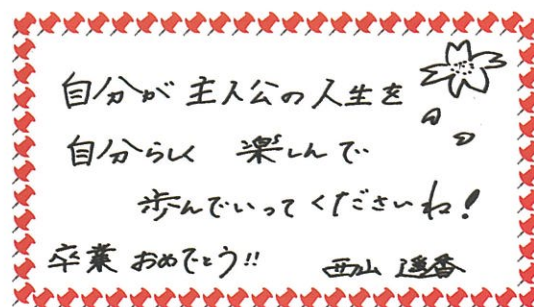 自分が主人公の人生を
自分らしく 楽しんで
歩んでいってくださいね!
卒業 おめでとう!! 西山 遥香